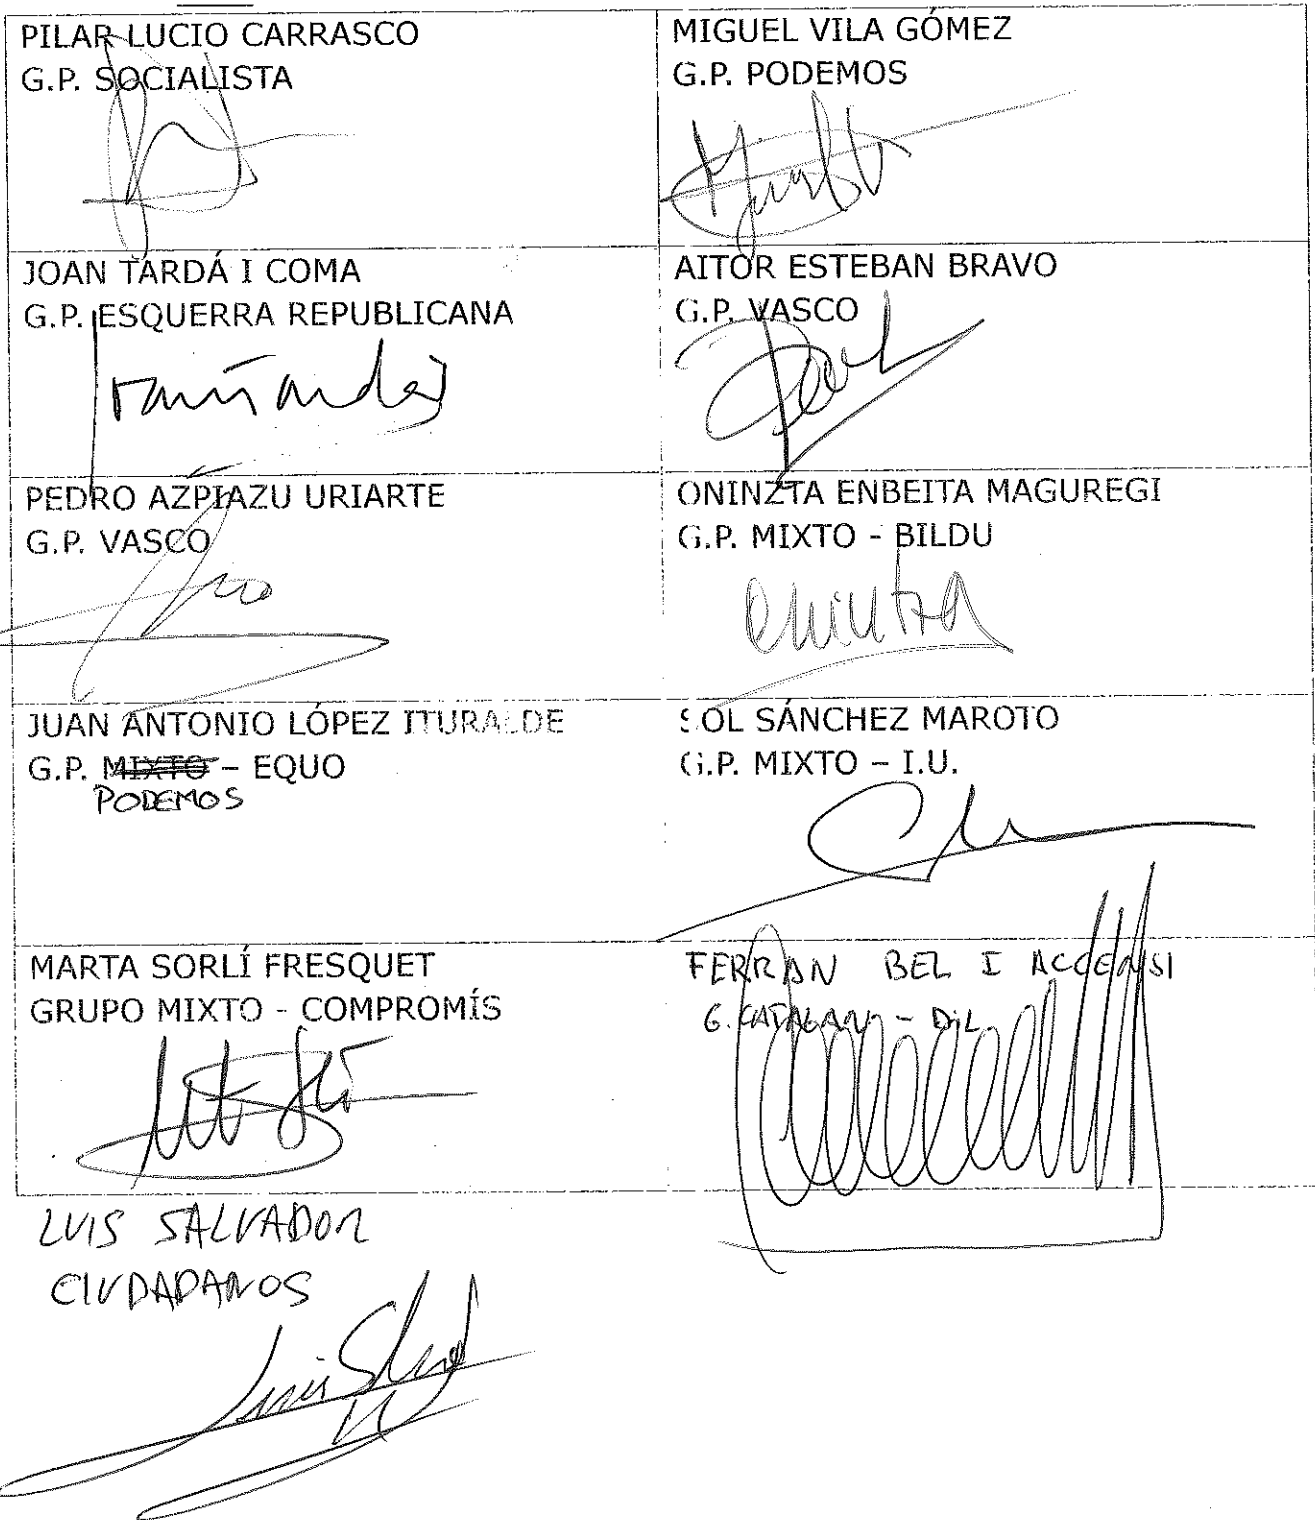 PILAR LUCIO CARRASCO
G.P. SOCIALISTA
MIGUEL VILA GÓMEZ
G.P. PODEMOS
JOAN TARDÁ I COMA
G.P. ESQUERRA REPUBLICANA
AITOR ESTEBAN BRAVO
G.P. VASCO
PEDRO AZPIAZU URIARTE
G.P. VASCO
ONINZTA ENBEITA MAGUREGI
G.P. MIXTO - BILDU
JUAN ANTONIO LÓPEZ ITURALDE
G.P. MIXTO – EQUO
PODEMOS
SOL SÁNCHEZ MAROTO
G.P. MIXTO – I.U.
MARTA SORLÍ FRESQUET
GRUPO MIXTO - COMPROMÍS
FERRAN BEL I ACCENSI
G. CATALAN - DiL
LUIS SALVADOR
CIUDADANOS